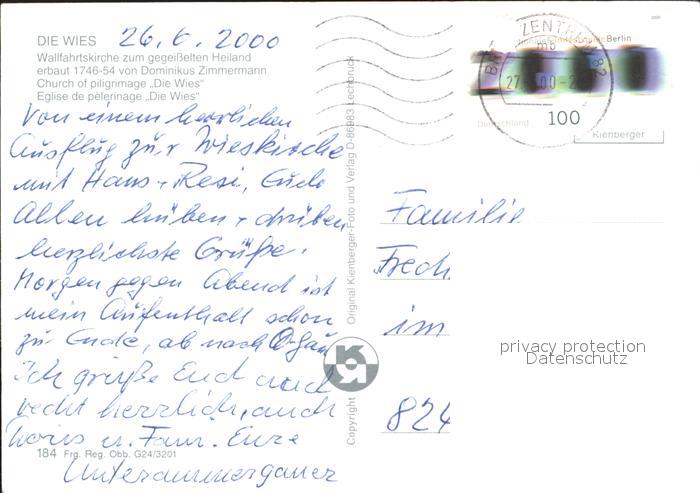 DIE WIES 26.6.2000
Wallfahrtskirche zum gegeißelten Heiland
erbaut 1746-54 von Dominikus Zimmermann
Church of piligrimage „Die Wies"
Eglise de pèlerinage „Die Wies"
Von einem herrlichen
Ausflug zur Wieskirche
mit Hans + Resi, Euch
Allen hüben + drüben
herzlichste Grüße.
Morgen gegen Abend ist
mein Aufenthalt schon
zu Ende, ab nach
Ich grüße Euch auch
recht herzlich, auch
u. Fam. Eure
Unterammergauer
184 Frg. Reg. Obb. G24/3201
Copyright Original Kienberger-Foto und Verlag D-86983 Lechbruck
Berlin
Deutschland
100
BRIEFZENTRUM 82
mb
27
00
Kienberger
Familie
Frech
im
824
privacy protection
Datenschutz